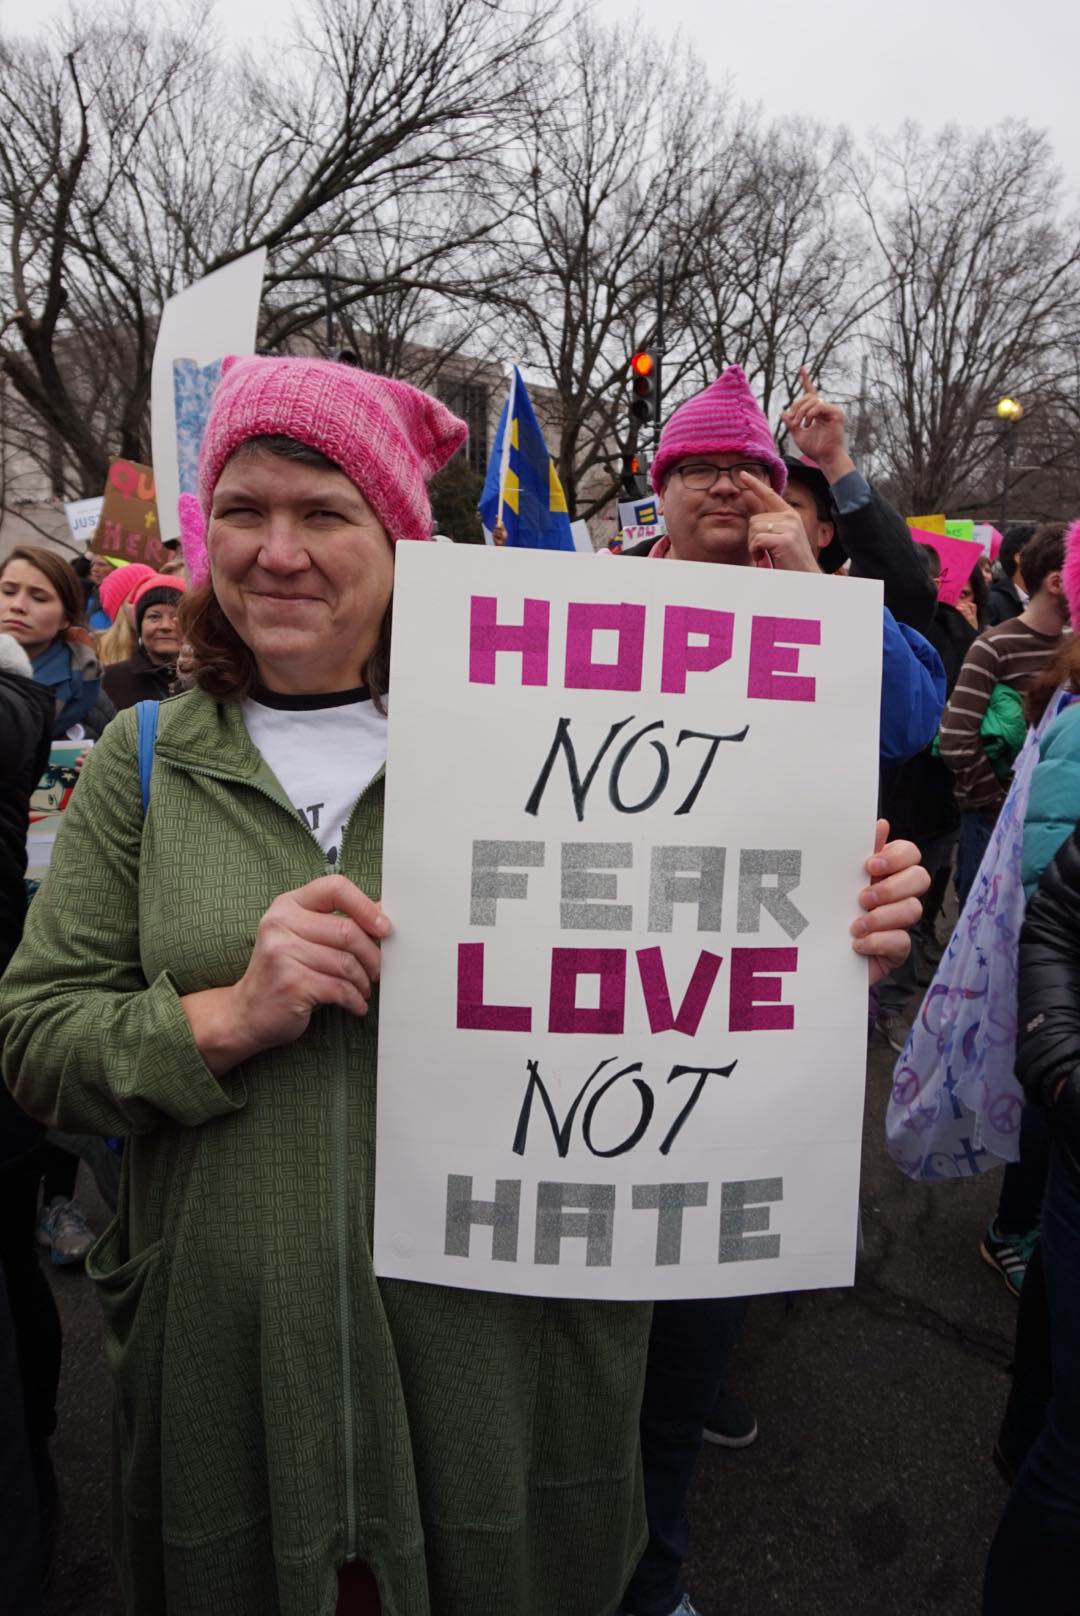 HOPE
NOT
FEAR
LOVE
NOT
HATE
JUST
HER
YOU